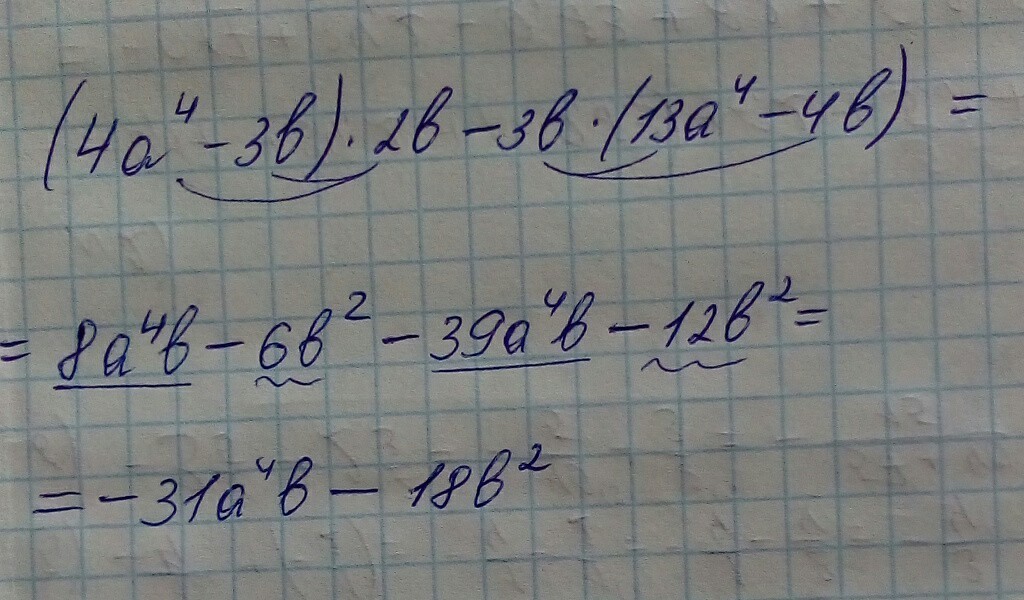 (4a⁴ - 3b) · 2b - 3b · (13a⁴ - 4b) =
= 8a⁴b - 6b² - 39a⁴b - 12b² =
= - 31a⁴b - 18b²